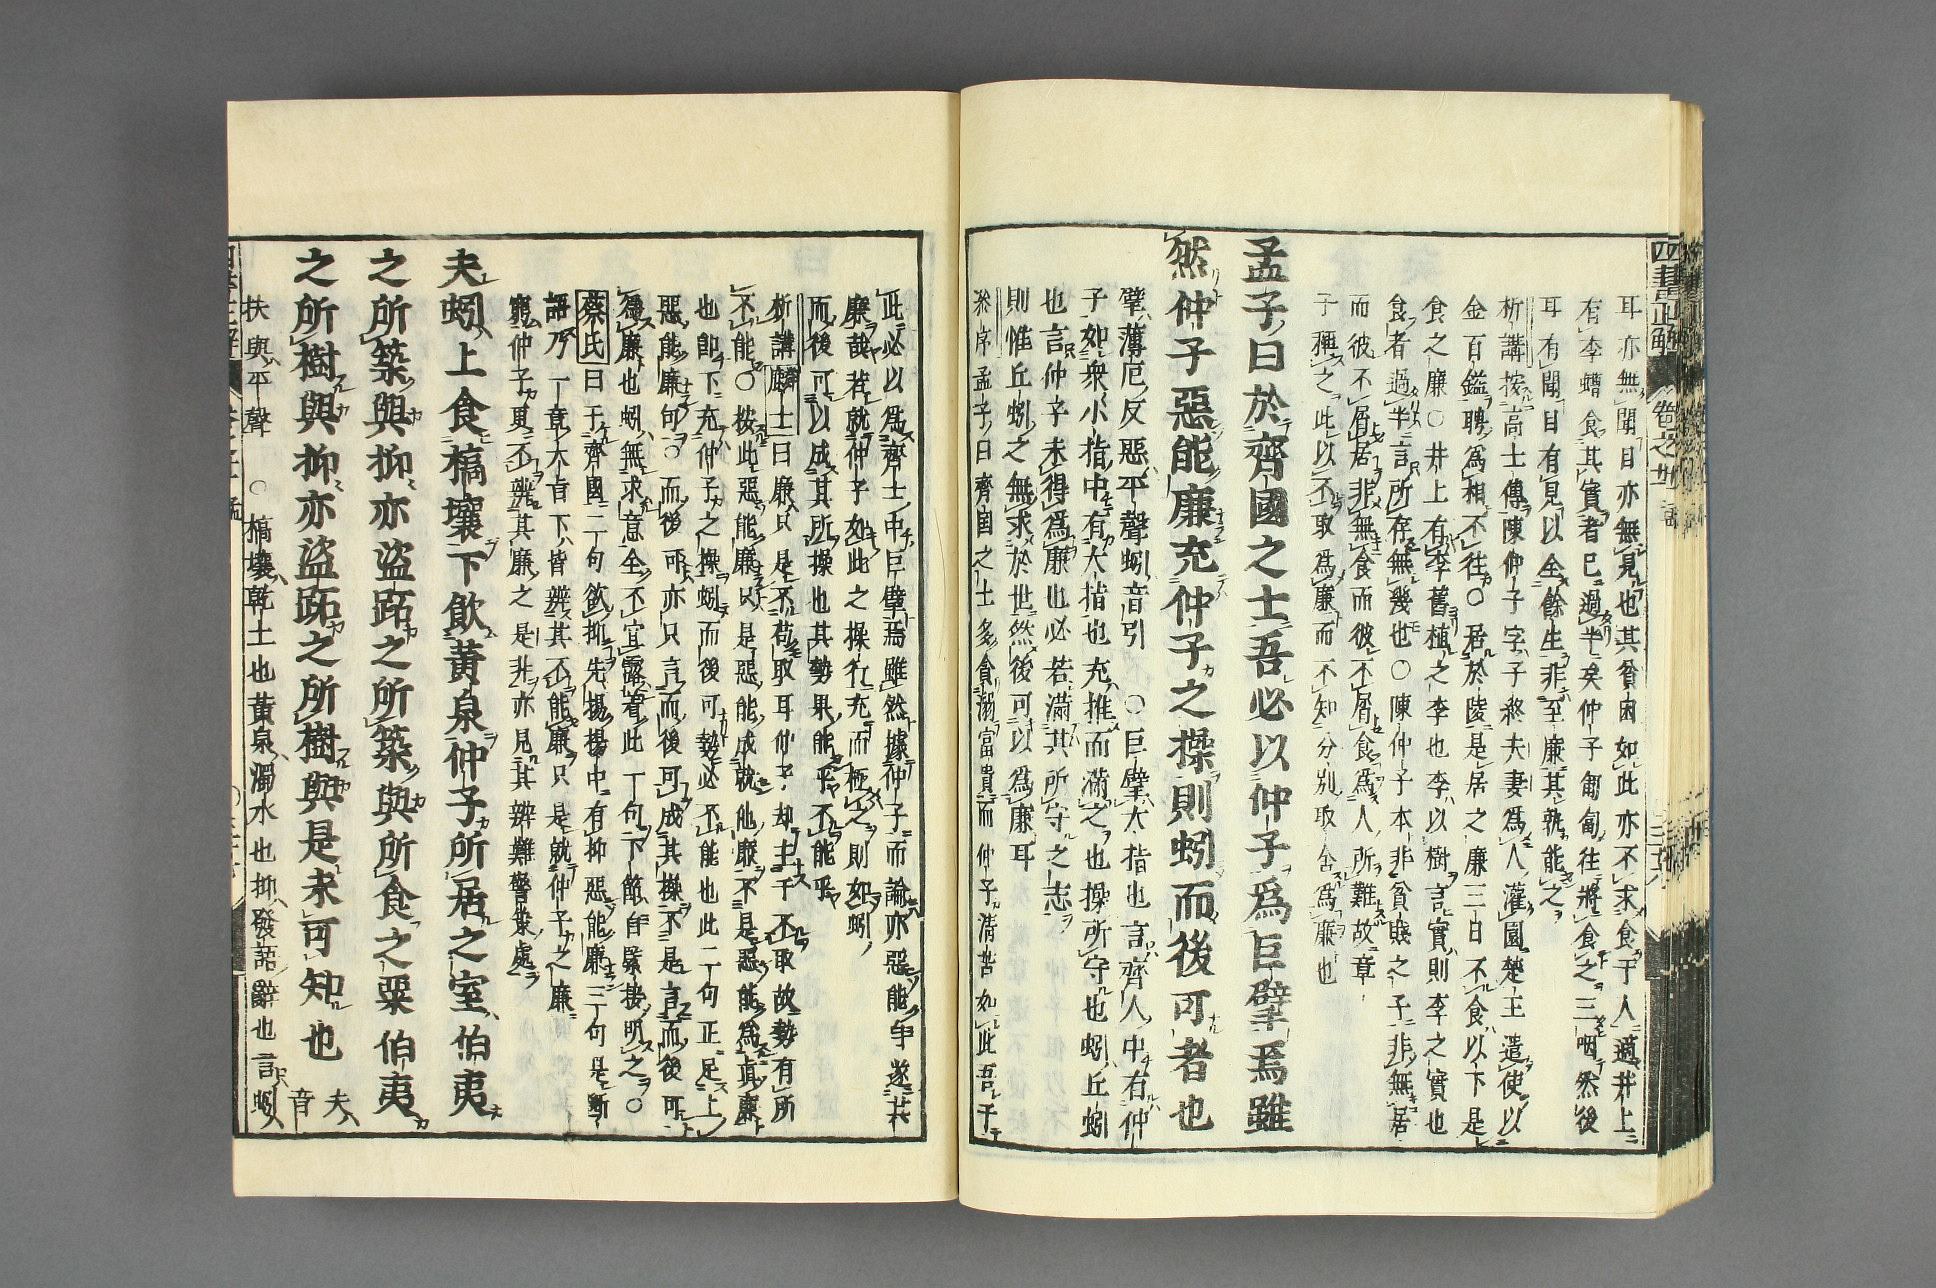 耳亦無聞目亦無見也其貧困如此亦不求食于人適井上
有李螬食其實者已過半矣仲子匍匐往將食之三咽然後
耳有聞目有見以全餘生非至廉其孰能之
析講按高士傳陳仲子字子終夫妻為人灌園楚王遣使以
金百鎰聘為相不往○居於陵是居之廉三日不食以下是
食之廉○井上有李舊植之李也李以樹言實則李之實也
食者過半言所存無幾也○陳仲子本非貧賤之子非無居
而彼不屑居非無食而彼不屑食為人所難故章
子稱之此以不取為廉而不知分別取舍為廉也
孟子曰於齊國之士吾必以仲子為巨擘焉雖
然仲子惡能廉充仲子之操則蚓而後可者也
擘薄厄反惡平聲蚓音引 ○巨擘大指也言齊人中有仲
子如衆小指中有大指也充推而滿之也操所守也蚓丘蚓
也言仲子未得為廉也必若滿其所守之志
則惟丘蚓之無求於世然後可以為廉耳
叅序孟子曰齊國之士多貪溺富貴而仲子清苦如此吾于
此必以為齊士中巨擘焉雖然據仲子而論亦惡能爭遂其
廉哉若就仲子如此之操行充而極之則如蚓
而後可以成其所操也其勢果能乎不能乎
析講麟士曰廉只是不苟取耳仲子却主于不取故勢有所
不能○按此惡能廉只是惡能成就他廢不是惡能為真廉
也即下充仲子之操蚓而後可勢必不能也此二句正足上
惡能廉句○而後可亦只言而後可成其操不是言而後可
為廉也蚓無求意全不宜露着此丁句下節自緊接明之○
蔡氏曰于齊國二句欲抑先揚揚中有抑惡能廉三句是斷
語乃丁章大旨下皆辨其不能廉只是就仲子之廉
窮仲子更不辨其廉之是非亦見其辨難警策處
夫蚓上食槁壤下飲黃泉仲子所居之室伯夷
之所築與抑亦盜跖之所築與所食之粟伯夷
之所樹與抑亦盜跖之所樹與是未可知也
夫音
扶與平聲 ○槁壤乾土也黃泉濁水也抑發語辭也言蚓
四書正解
卷之廿